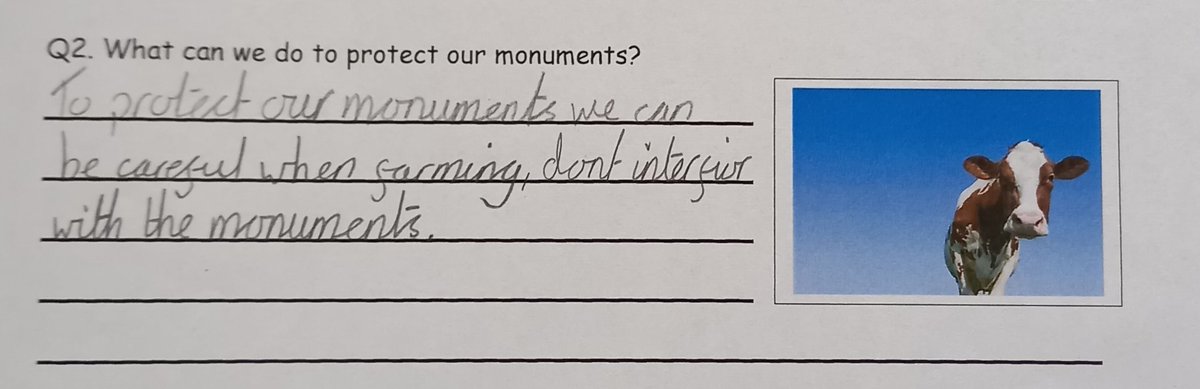 Q2. What can we do to protect our monuments?
To protect our monuments we can
be careful when farming, dont interfiur
with the monuments.